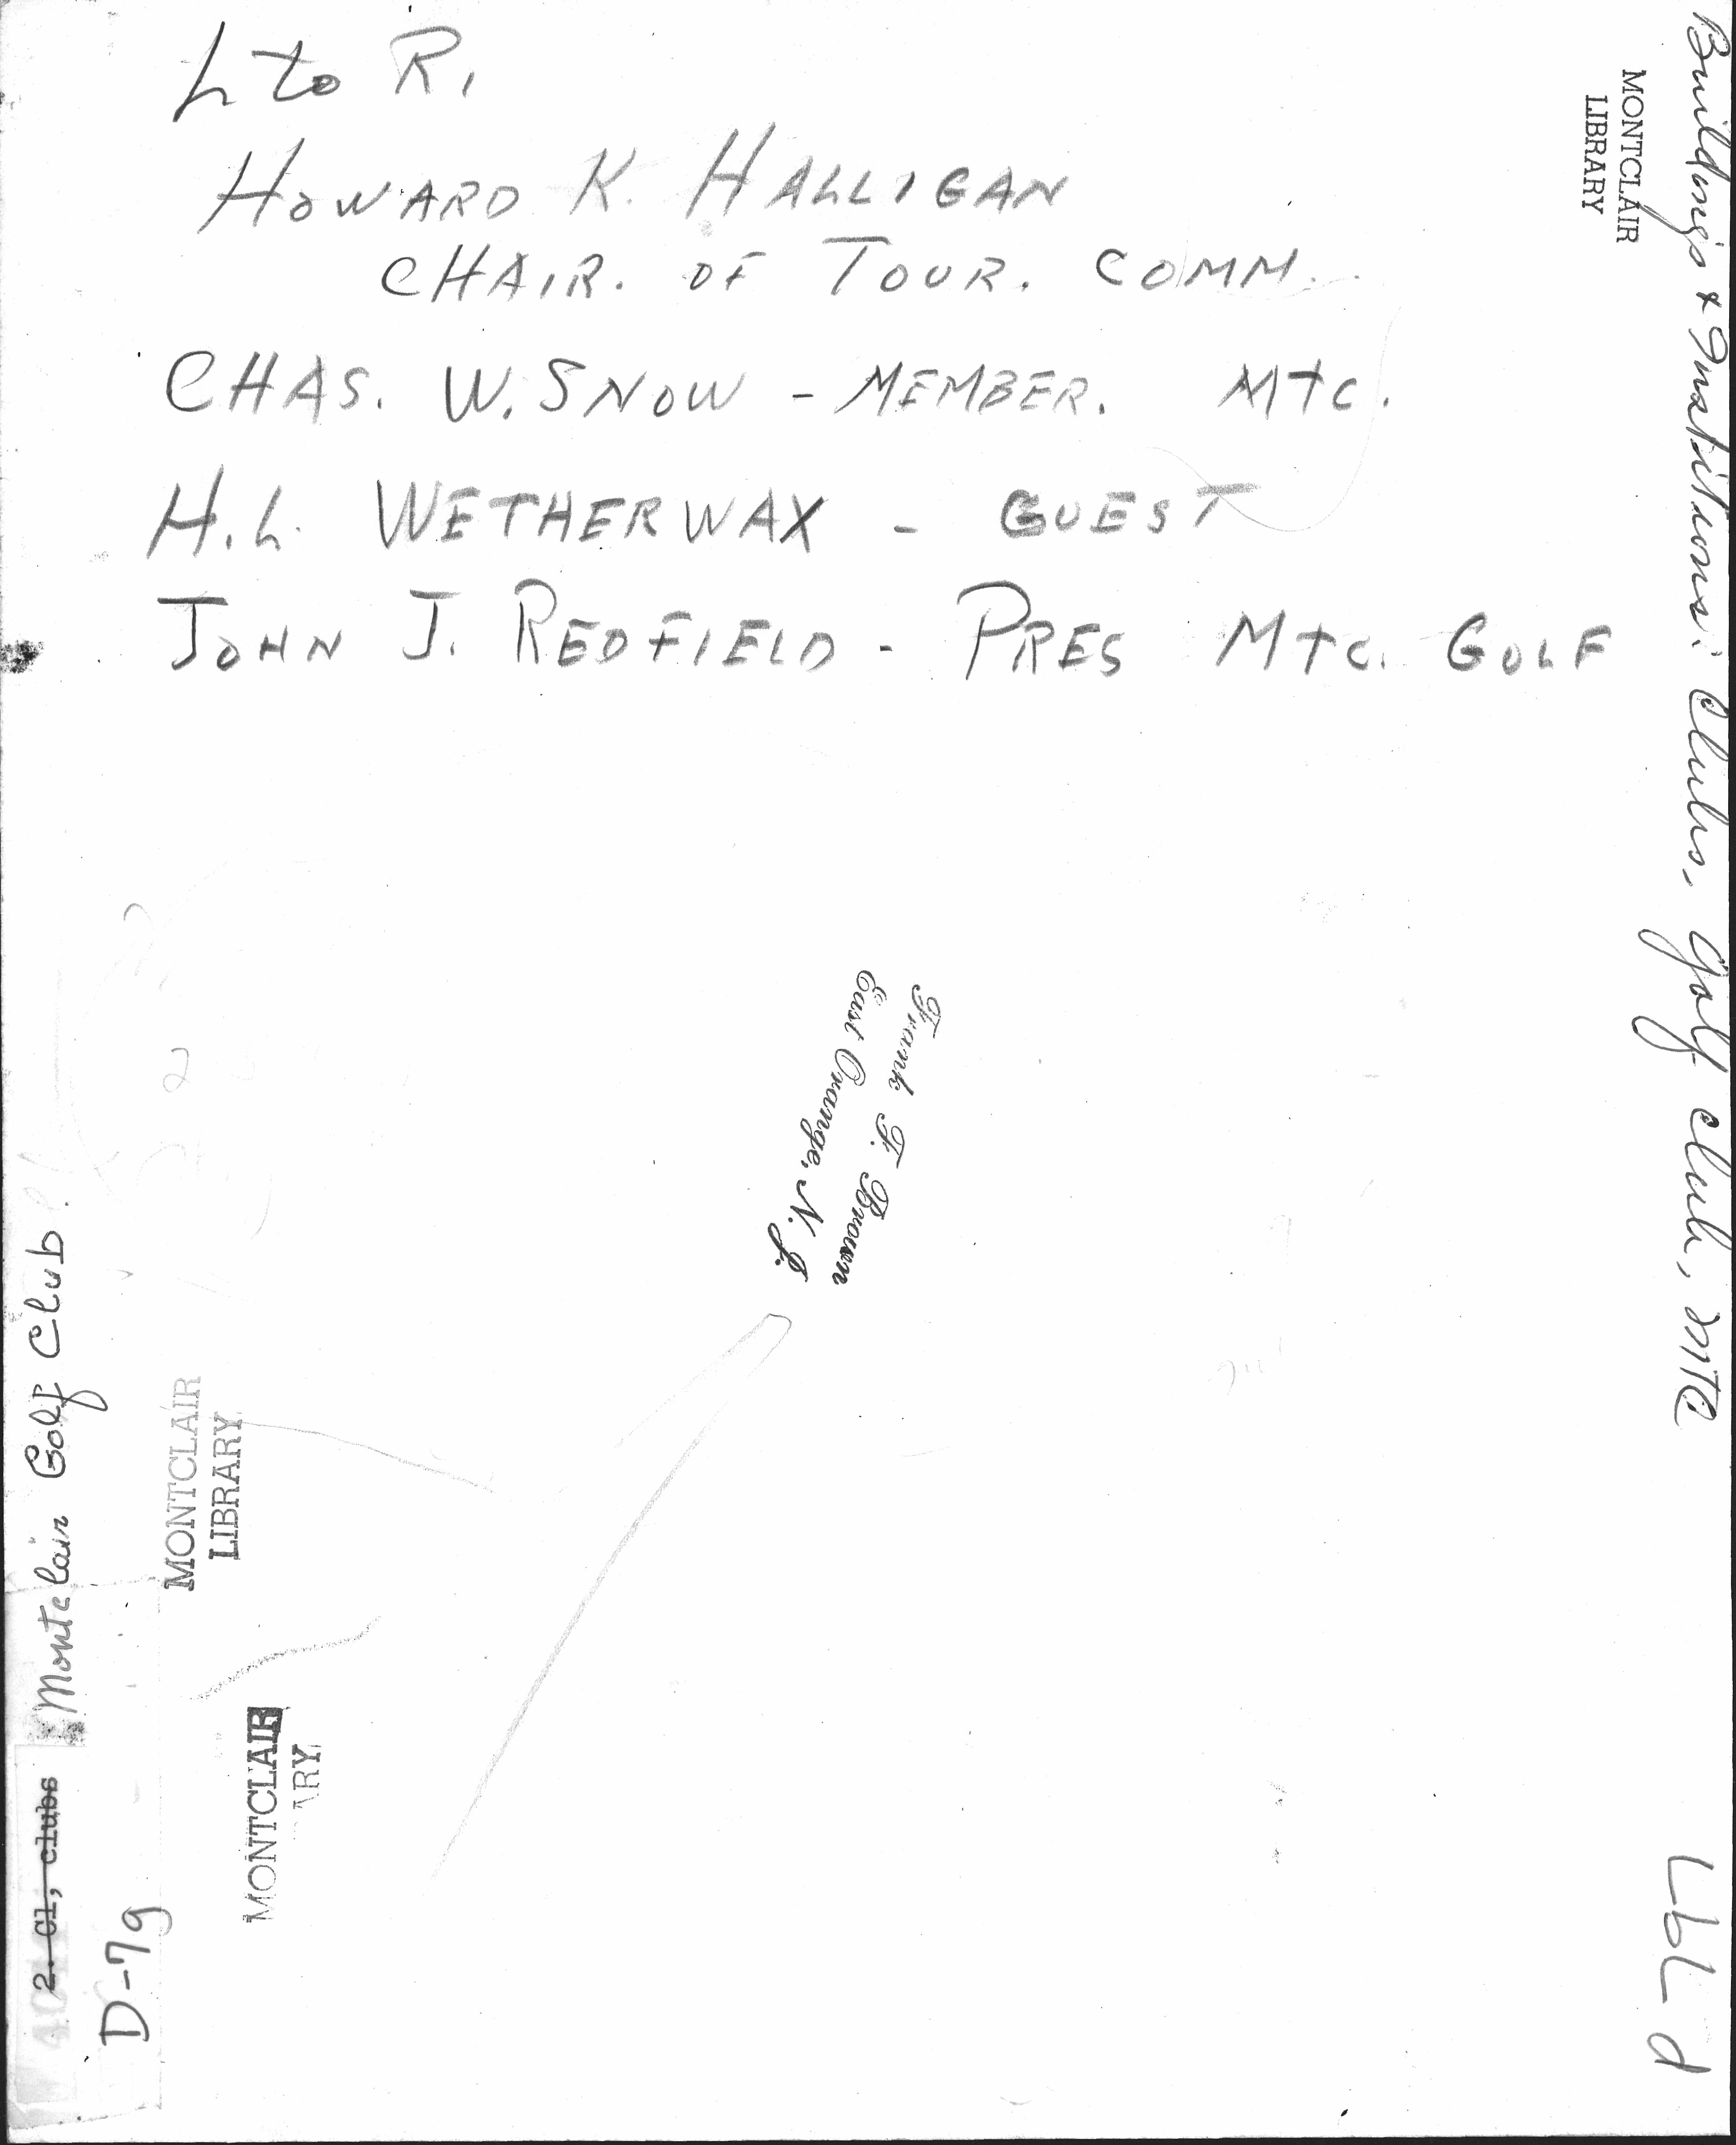 L to R.
HOWARD K. HALLIGAN
CHAIR. OF TOUR. COMM.
CHAS. W. SNOW - MEMBER. MTC.
H.L. WETHERWAX - GUEST
JOHN J. REDFIELD - PRES MTC. GOLF
MONTCLAIR
LIBRARY
Buildings & Institutions: Clubs, Golf club, MTC
Frank F. Brown
East Orange, N. J.
Montclair Golf Club?
2. Cl, clubs
D-79
MONTCLAIR
LIBRARY
MONTCLAIR
ARY